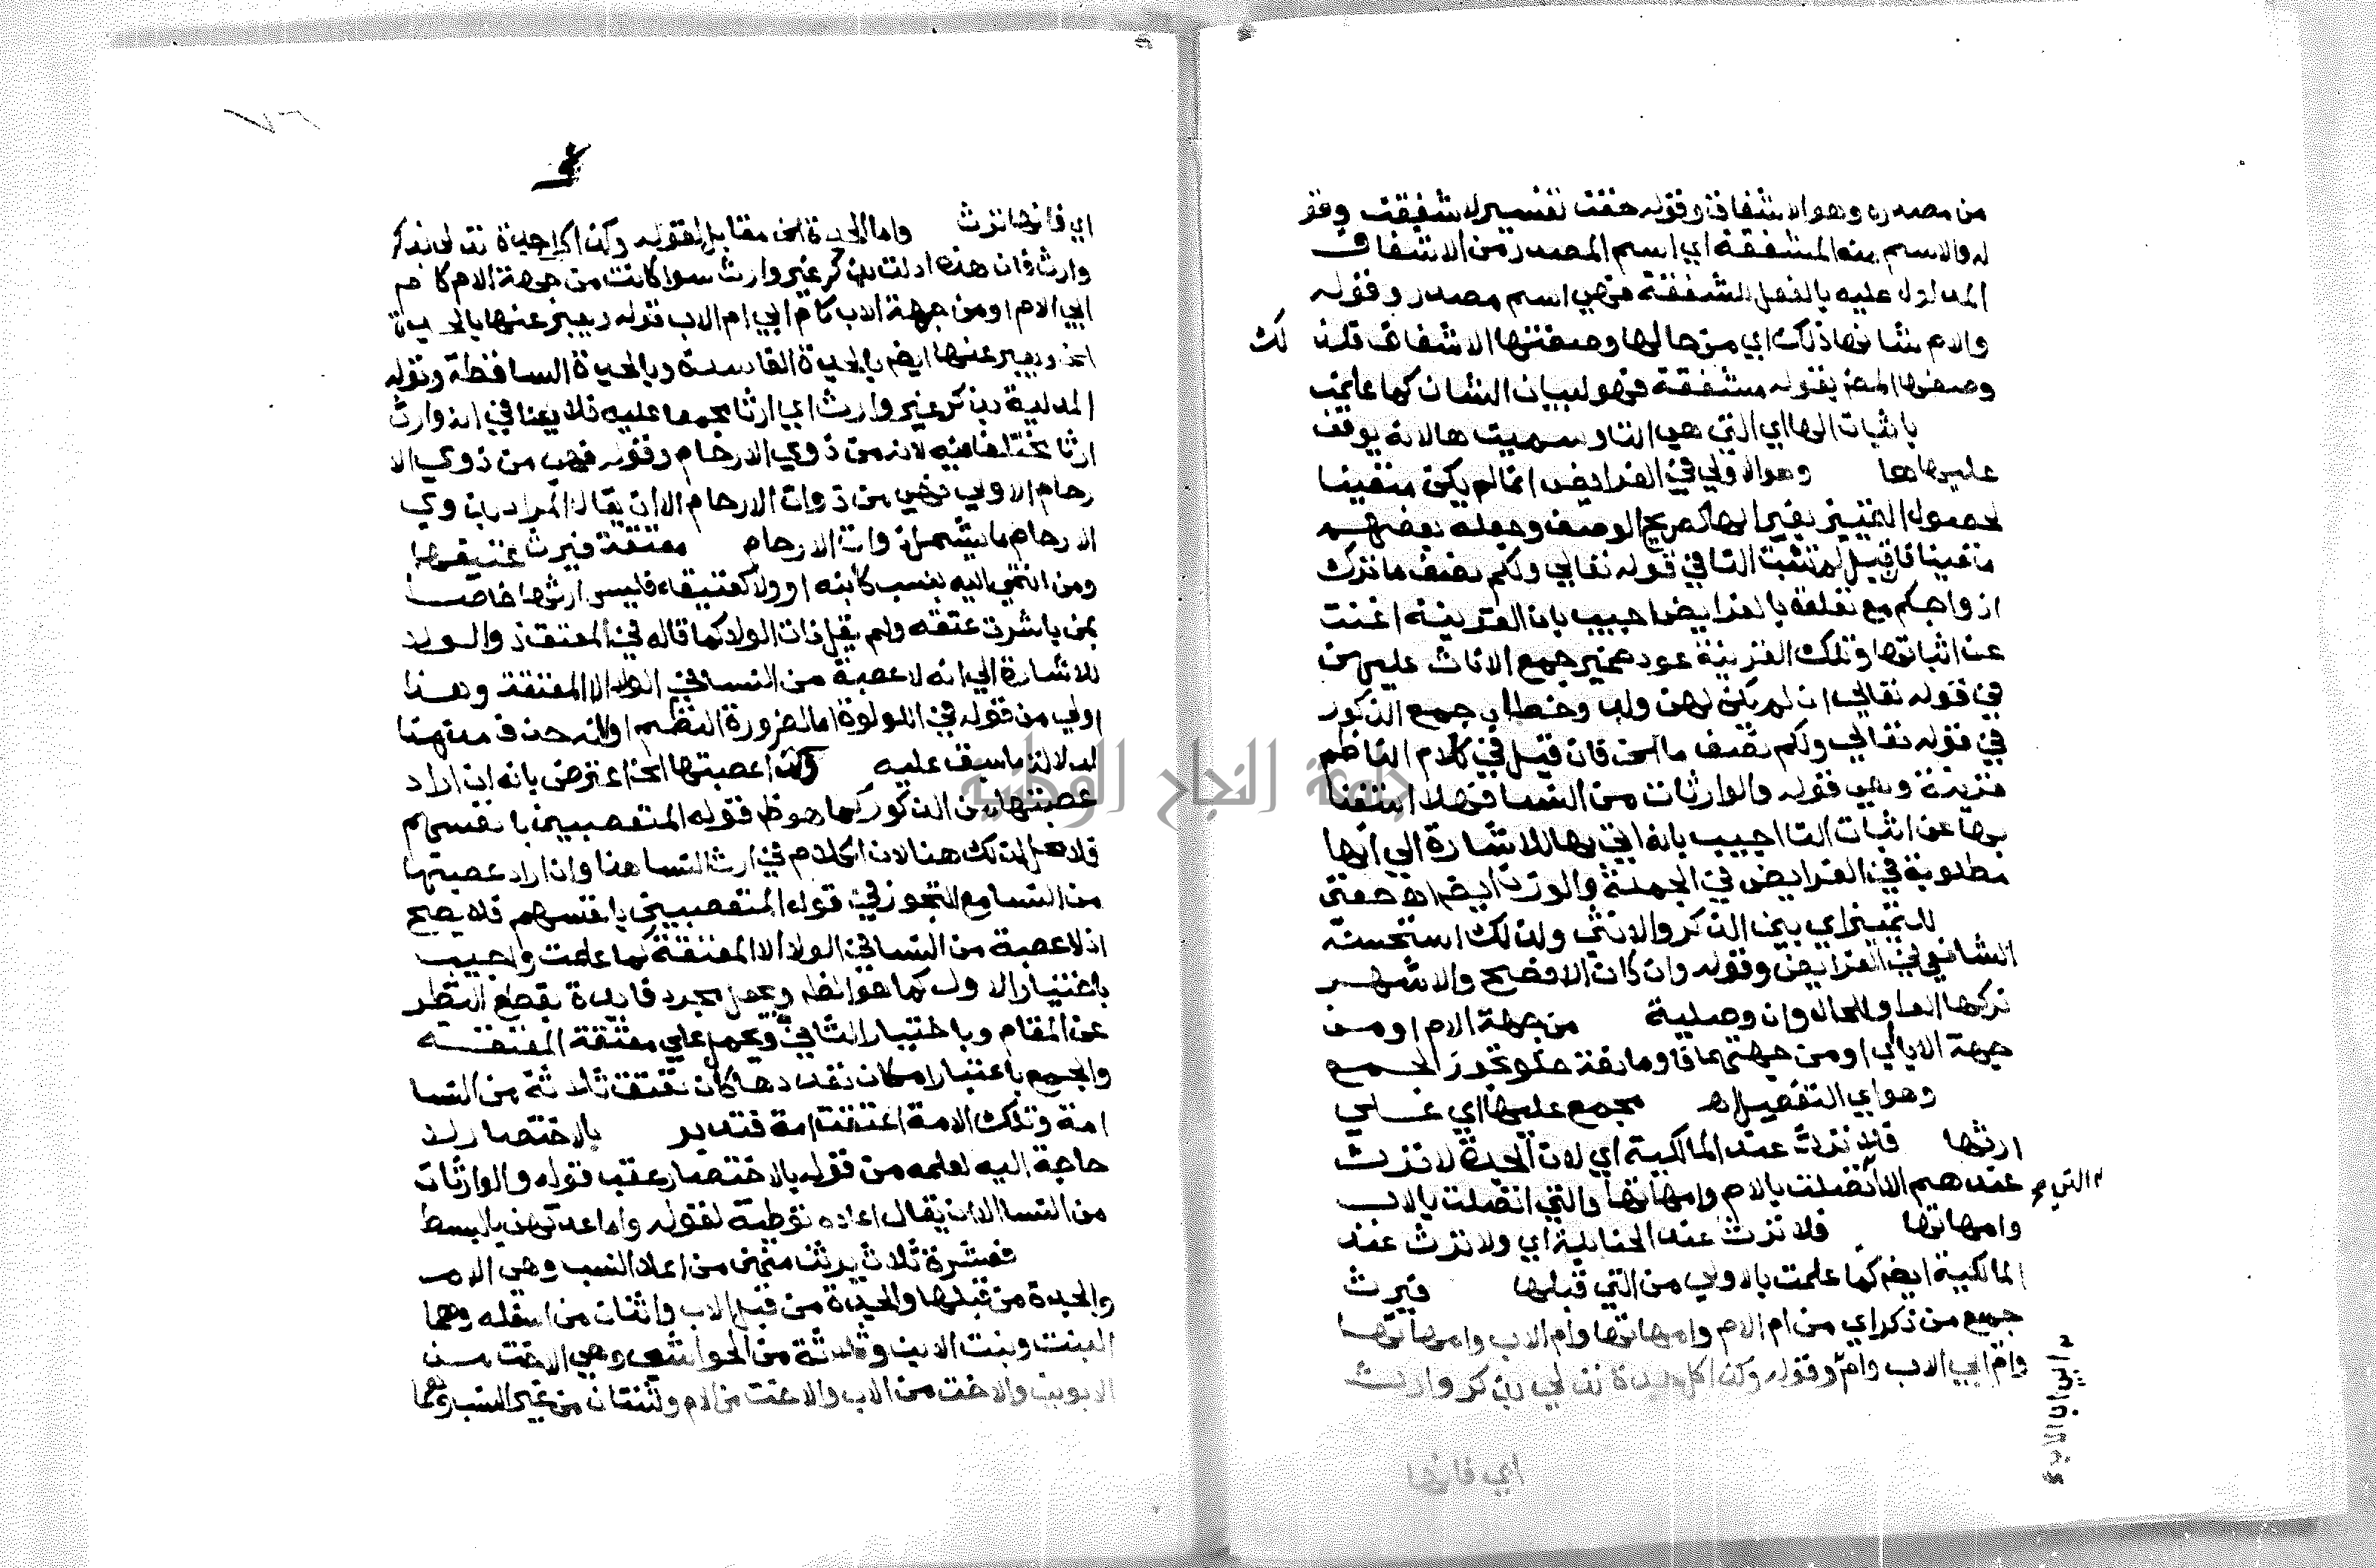 من مصدره وهو الاشفاق وقوله خفت تفسير لاشفقت وقو
له والاسم منه الشفقة اي اسم المصدر من الاشفاق
المدلول عليه بالفعل الشفقة فهي اسم مصدر وقوله
والام شانها ذلك اي من حالها وصفتها الاشفاق فلذ لك
وصفها المص بقوله مشفقة فهو لبيان الشان كما علمت
باثبات الها اي التي هي التا وسميت ها لانه يوقف
عليها بها وهو الاولي في الفرايض انما لم يكن متعينا
لحصول التمييز بغير الها كصريح الوصف وجعله بعضهم
متعينا فان قيل لم تثبت التا في قوله تعالي ولكم نصف ما ترك
ازواجكم مع تعلقه بالفرايض اجيب بان القرينة اغنت
عن اثباتها وتلك القرينة عود ضمير جمع الاناث عليهن
في قوله تعالي ان لم يكن لهن ولد وخطاب جمع الذكور
في قوله تعالي ولكم نصف ما الخ فان قيل في كلام الناظم
قرينة وهي قوله والوارثات من النسا فهلا استغنا
بها عن اثبات التا اجيب بانه اتي بها للاشارة الي انها
مطلوبة في الفرايض في الجملة والوزن ايضا
للتمييز اي بين الذكر والانثي ولذلك استحسنه
الشافعي في الفرايض وقوله وان كان الافصح والاشهر
تركها الواو للحال وان وصلية من جهة الام او من
جهة الاب اي او من جهتهما معا وما نعة خلو تجوز الجمع
وهو اي التفصيل اهـ مجمع عليها اي علي
ارثها فلا ترث عند المالكية اي لان الجدة لا ترث
عندهم الا التي اتصلت بالام وامهاتها والتي اتصلت بالاب
وامهاتها فلا ترث عند الحنابلة اي ولا ترث عند
المالكية ايضا كما علمت بالاولي من التي قبلها فيرث
جميع من ذكر اي من ام الام وامهاتها وام الاب وامهاتها
وام ابي الاب وام وقوله وكذا كل جدة تدلي بذكر وارث
ابي ابي الاب
اي فانها
اي فانها ترث واما الجدة الخ مقابل لقوله وكذا كل جدة تدلي بذكر
وارث فان هذه ادلت بذكر غير وارث سوا كانت من جهة الام كام
ابي الام او من جهة الاب كام ابي ام الاب قوله ويعبر عنها بالجدة
الخ ويعبر عنها ايضا بالجدة الفاسدة وبالجدة الساقطة وقوله
المدلية بذكر غير وارث اي ارثا مجمعا عليه فلا ينافي انه وارث
ارثا مختلفا فيه لانه من ذوي الارحام وقوله فهي من ذوي الا
رحام الاولي فهي من ذوات الارحام الا ان يقال المراد بذوي
الارحام ما يشمل ذوات الارحام معتقة فيرث عتيقها
ومن انتمي اليه بنسب كابنه او ولا كعتيقه فليس ارثها خاصا
بمن باشرت عتقه ولم يقل ذات الولا كما قاله في المعتق ذو الولا
للاشارة الي انه لا عصبة من النسا في الولا الا المعتقة وهذا
اولي من قوله في اللولوة اما لضرورة النظم او انه حذف من هنا
لدلالة ما سبق عليه وكذا عصبتها الخ اعترض بانه ان اراد
عصبتها من الذكور كما هو ظ قوله المتعصبين بانفسهم
فلا محل لذلك هنا لان الكلام في ارث النسا هنا وان اراد عصبتها
من النسا مع التجوز في قوله المتعصبين بانفسهم فلا يصح
اذ لا عصبة من النسا في الولا الا المعتقة كما علمت واجيب
باختيار الاول كما هو الظ ويجعل مجرد فايدة بقطع النظر
عن المقام وباختيار الثاني ويحمل علي معتقة المعتقة
والجمع باعتبار امكان تعددها كان تعتق ثلاثة من النسا
امة وتلك الامة اعتقت امة فتدبر بالاختصار لا
حاجة اليه لعلمه من قوله بالاختصار عقب قوله والوارثات
من النسا الا ان يقال اعاده توطئة لقوله واما عدتهن بالبسط
فعشرة ثلاث يرثن منهن من اعلا النسب وهي الام
والجدة من قبلها والجدة من قبل الاب واثنان من اسفله وهما
البنت وبنت الابن وثلاثة من الحواشي وهي الاخت من
الابوين والاخت من الاب والاخت من الام وثنتان من غير النسب وهما